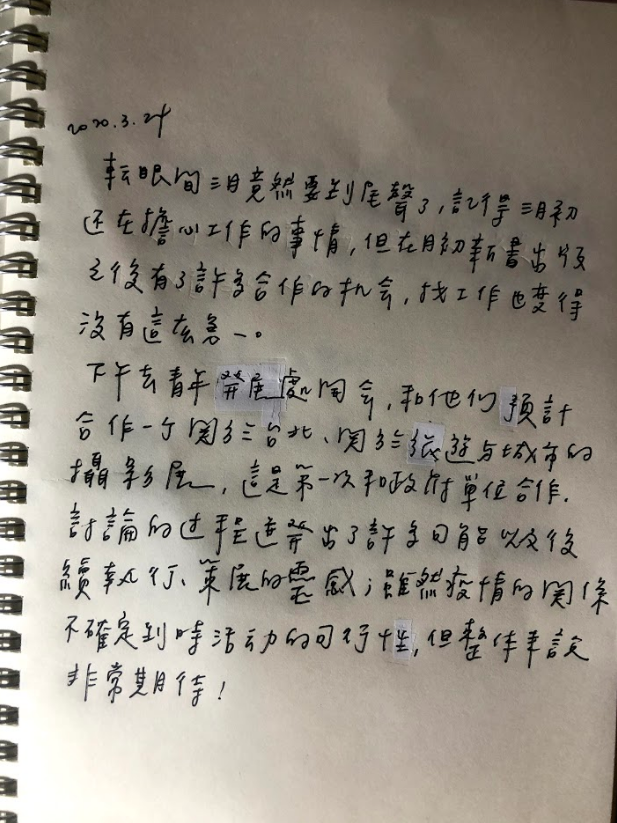 2020.3.24
転眼間三月竟然要到尾聲了，記得三月初
还在擔心工作的事情，但在月初新書出版
之後有了許多合作的机会，找工作也变得
沒有這么急一。
下午去青年發展處開会，和他们預計
合作一个関於台北、関於旅遊与城市的
攝影展，這是第一次和政府單位合作.
討論的过程迸發出了許多可能以及後
續執行、策展的靈感；雖然疫情的関係
不確定到時活动的可行性，但整体来說
非常期待！